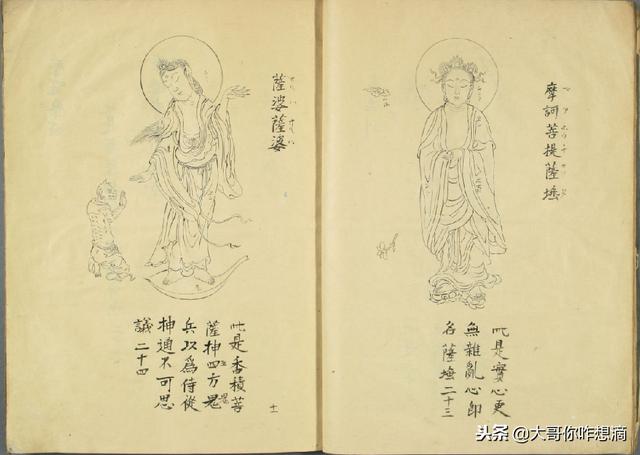 摩訶菩提薩埵
此是實心更
無雜亂心即
名薩埵二十三
薩婆薩婆
此是香積菩
薩押四方鬼
兵以為侍從
神通不可思
議二十四
十一
头条 @大哥你咋想滴